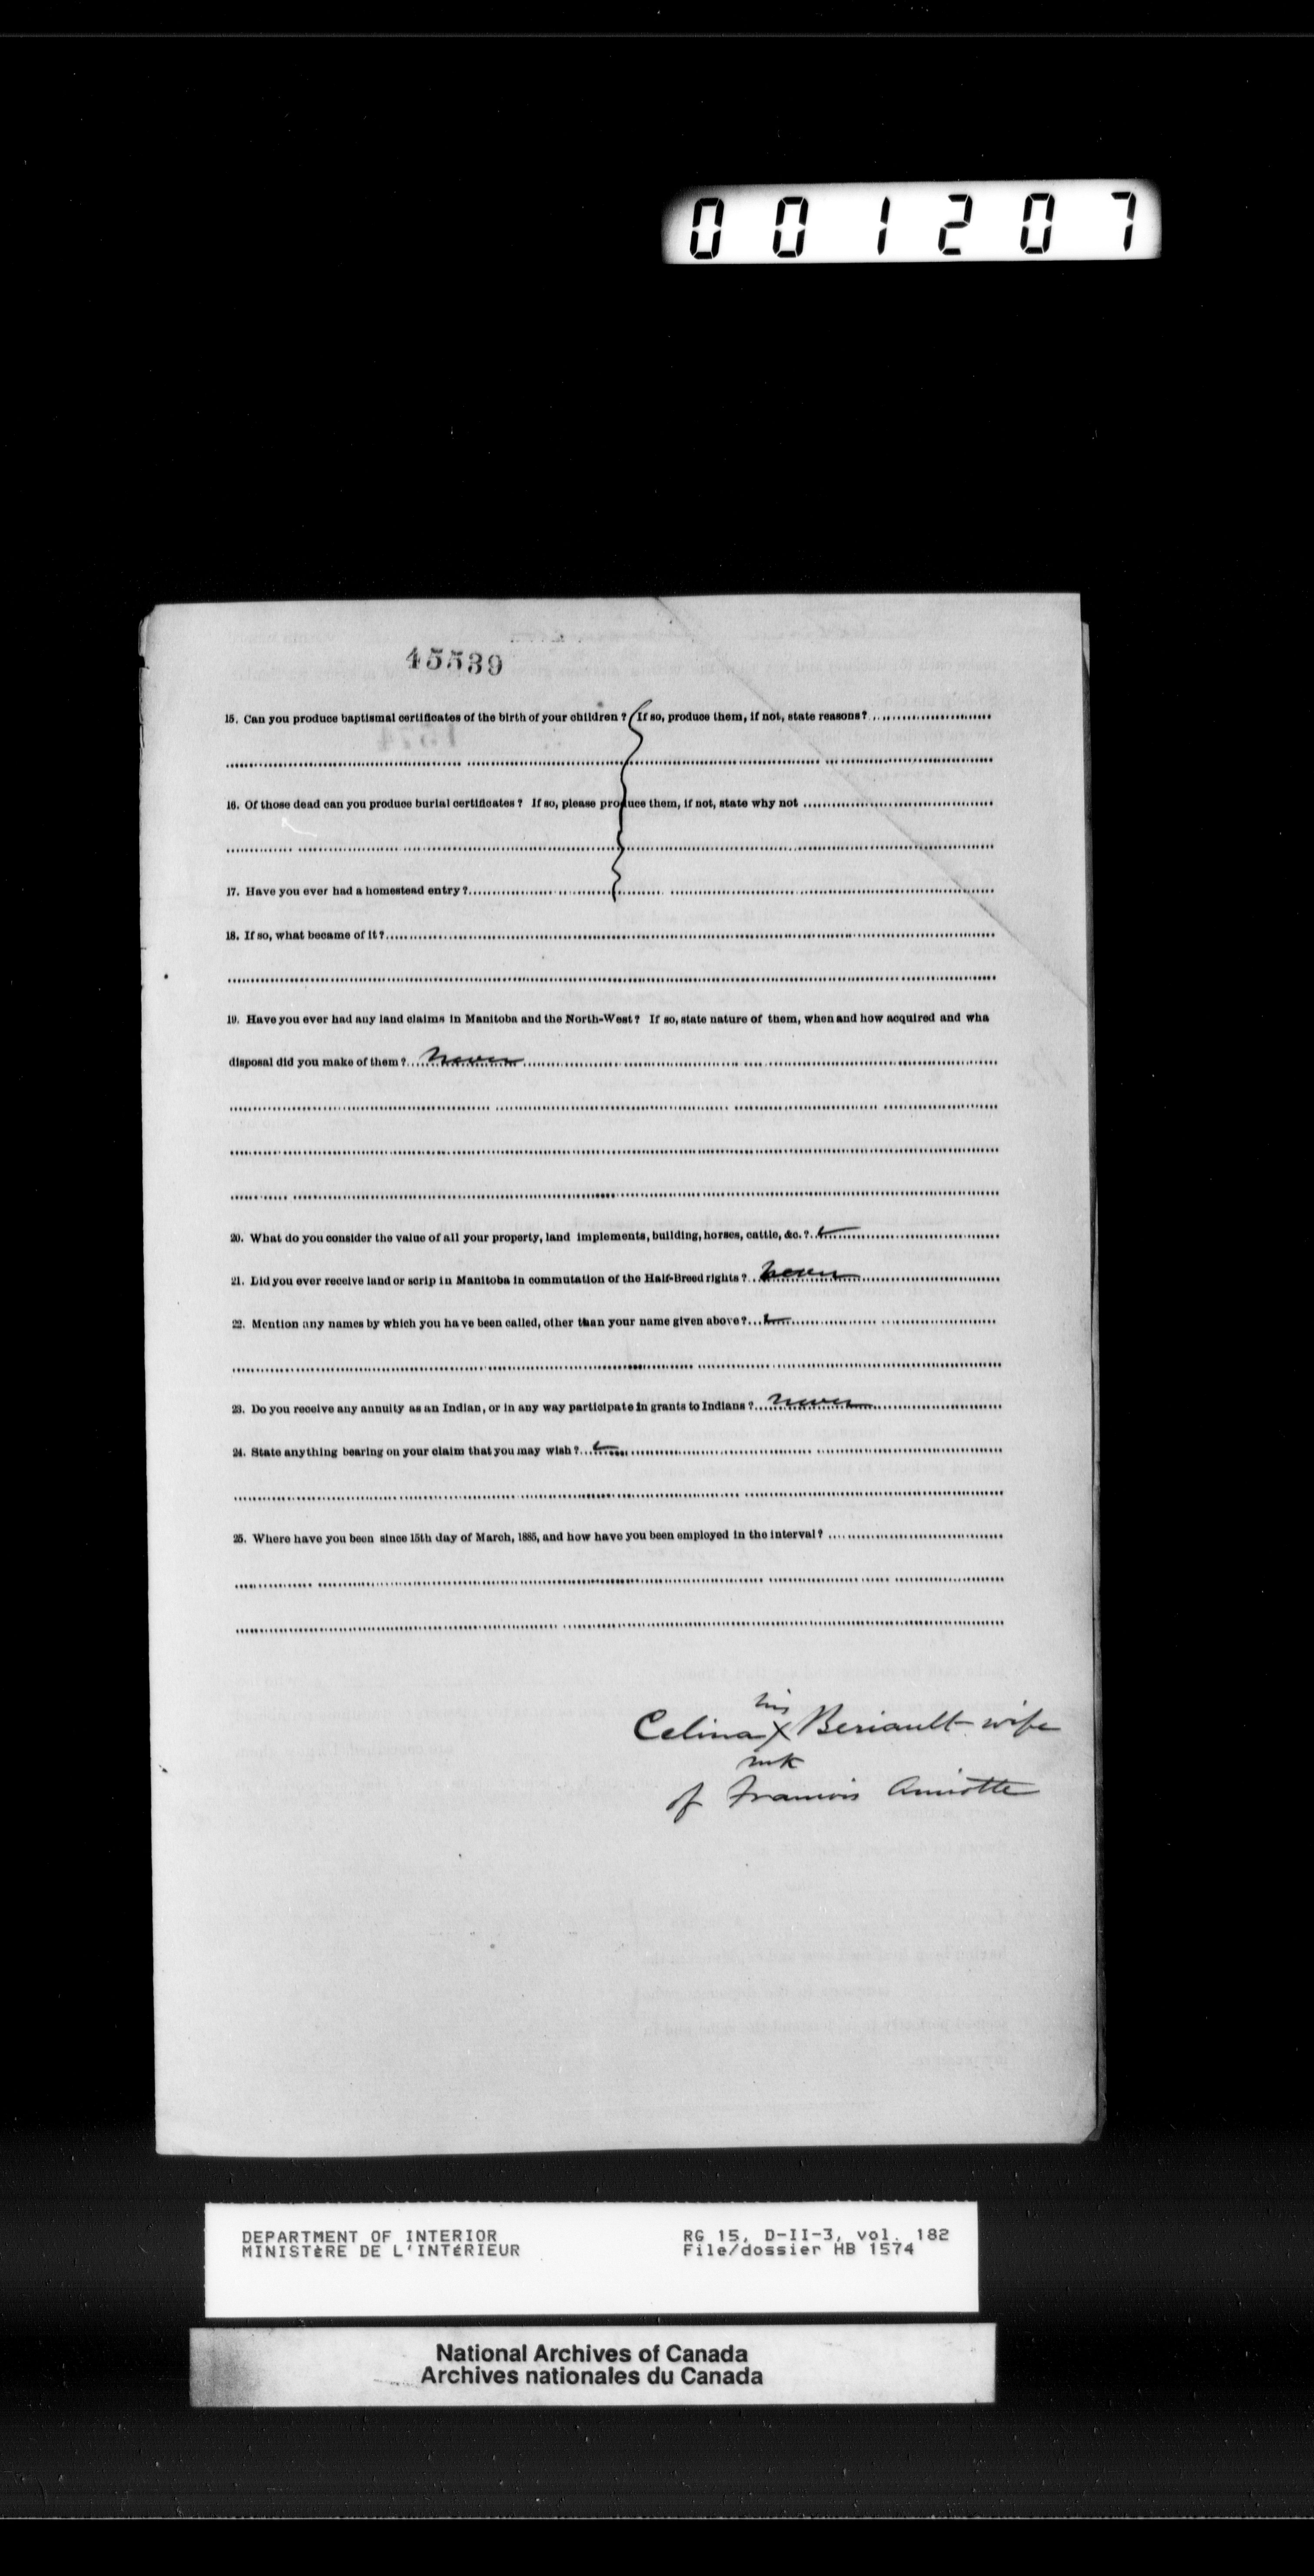 001207
45539
15. Can you produce baptismal certificates of the birth of your children? If so, produce them, if not, state reasons?
16. Of those dead can you produce burial certificates? If so, please produce them, if not, state why not
17. Have you ever had a homestead entry?
18. If so, what became of it?
19. Have you ever had any land claims in Manitoba and the North-West? If so, state nature of them, when and how acquired and wha
disposal did you make of them? Never
20. What do you consider the value of all your property, land implements, building, horses, cattle, &c.?
21. Did you ever receive land or scrip in Manitoba in commutation of the Half-Breed rights? Never
22. Mention any names by which you have been called, other than your name given above?
23. Do you receive any annuity as an Indian, or in any way participate in grants to Indians? Never
24. State anything bearing on your claim that you may wish?
25. Where have you been since 15th day of March, 1885, and how have you been employed in the interval?
his
Celina X Beriault wife
mk
of Francois Amiotte
DEPARTMENT OF INTERIOR
MINISTÈRE DE L'INTÉRIEUR
RG 15, D-II-3, vol. 182
File/dossier HB 1574
National Archives of Canada
Archives nationales du Canada